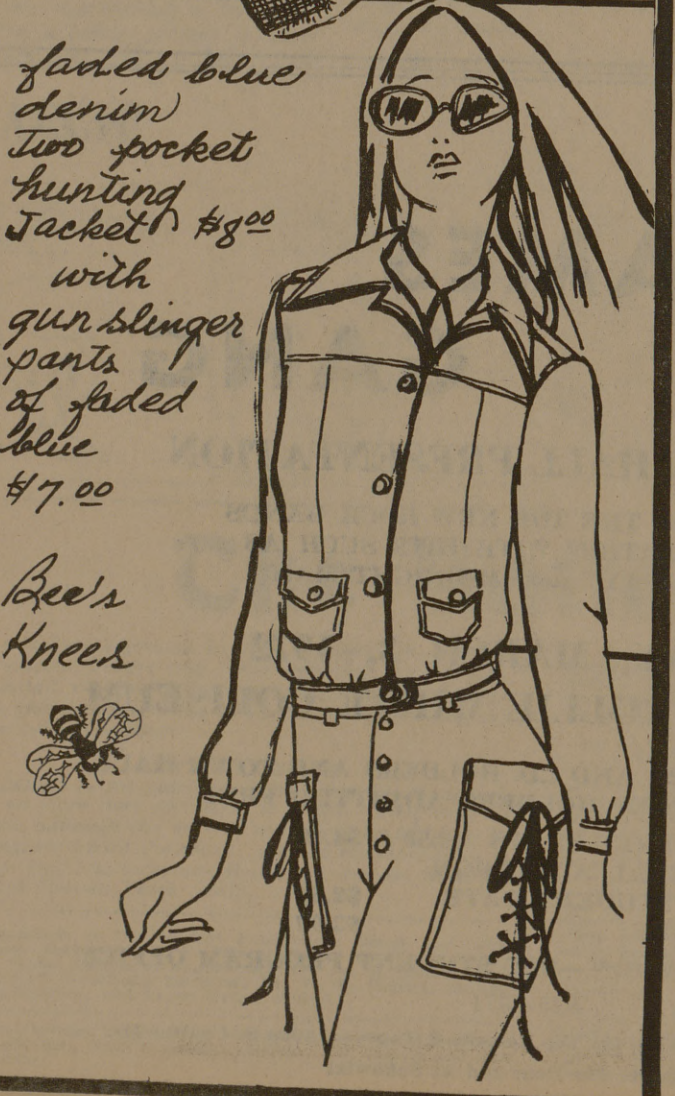 faded blue
denim
Two pocket
hunting
Jacket $8.00
with
gunslinger
pants
of faded
blue
$7.00
Bee's
Knees